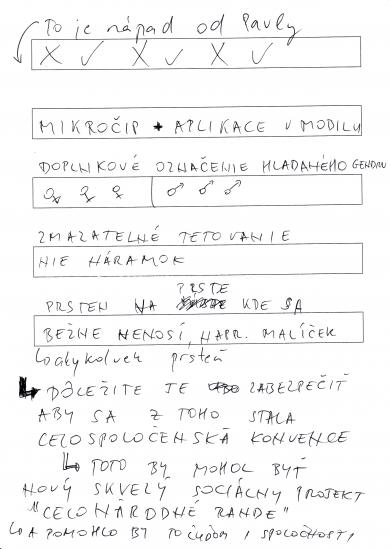 To je nápad od Pavly
X ✓ X ✓ X ✓
MIKROČIP + APLIKACE V MOBILU
DOPLNKOVÉ OZNAČENIE HLADANÉHO GENDRU
♀ ♀ ♀ ♂ ♂ ♂
ZMAZATELNÉ TETOVANIE
NIE NÁRAMOK
PRSTE
PRSTEN NA KDE SA
BEŽNE NENOSÍ, NAPR. MALÍČEK
akykolvek prsteň
DÔLEŽITE JE ZABEZPEČIŤ
ABY SA Z TOHO STALA
CELOSPOLOČENSKÁ KONVENCE
TOTO BY MOHOL BYŤ
NOVÝ SKVELÝ SOCIÁLNY PROJEKT
"CELONÁRODNÉ RANDE"
A POMOHLO BY TO ĽUĎOM I SPOLOČNOSTI